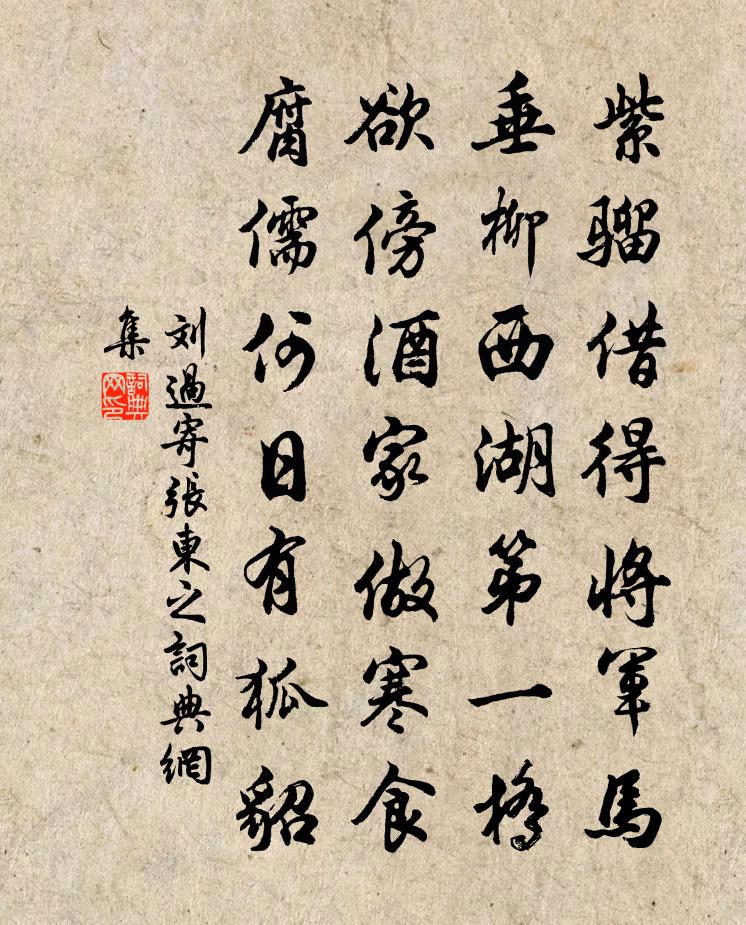 紫騮借得將軍馬
垂柳西湖第一橋
欲傍酒家做寒食
腐儒何日有狐貂
刘過寄張東之詞典網
集
詞典
网印